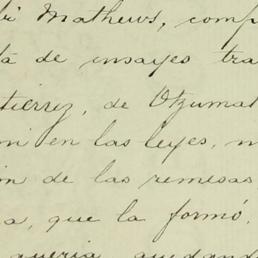 Mathews, comp
ta de ensayes tra
tierrez, de Otzumat
ni en las leyes, n
ón de las remesas
a, que la formó,
queria quedando